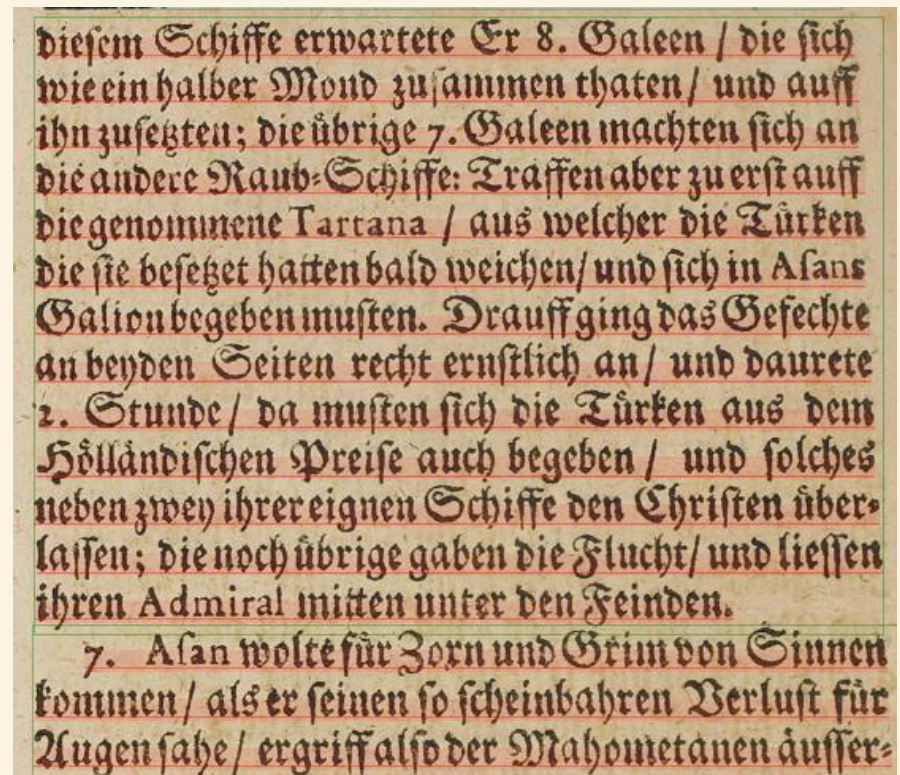 dieſem Schiffe erwartete Er 8. Galeen / die ſich
wie ein halber Mond zuſammen thaten / und auff
ihn zuſetzten; die übrige 7. Galeen machten ſich an
die andere Raub-Schiffe: Traffen aber zu erſt auff
die genommene Tartana / aus welcher die Türken
die ſie beſetzet hatten bald weichen / und ſich in Aſans
Galion begeben muſten. Drauff ging das Gefechte
an beyden Seiten recht ernſtlich an / und daurete
2. Stunde / da muſten ſich die Türken aus dem
Hölländiſchen Preiſe auch begeben / und ſolches
neben zwey ihrer eignen Schiffe den Chriſten über-
laſſen; die noch übrige gaben die Flucht / und lieſſen
ihren Admiral mitten unter den Feinden.
7. Aſan wolte für Zorn und Grim von Sinnen
kommen / als er ſeinen ſo ſcheinbahren Verluſt für
Augen ſahe / ergriff alſo der Mahometanen äuſſer-